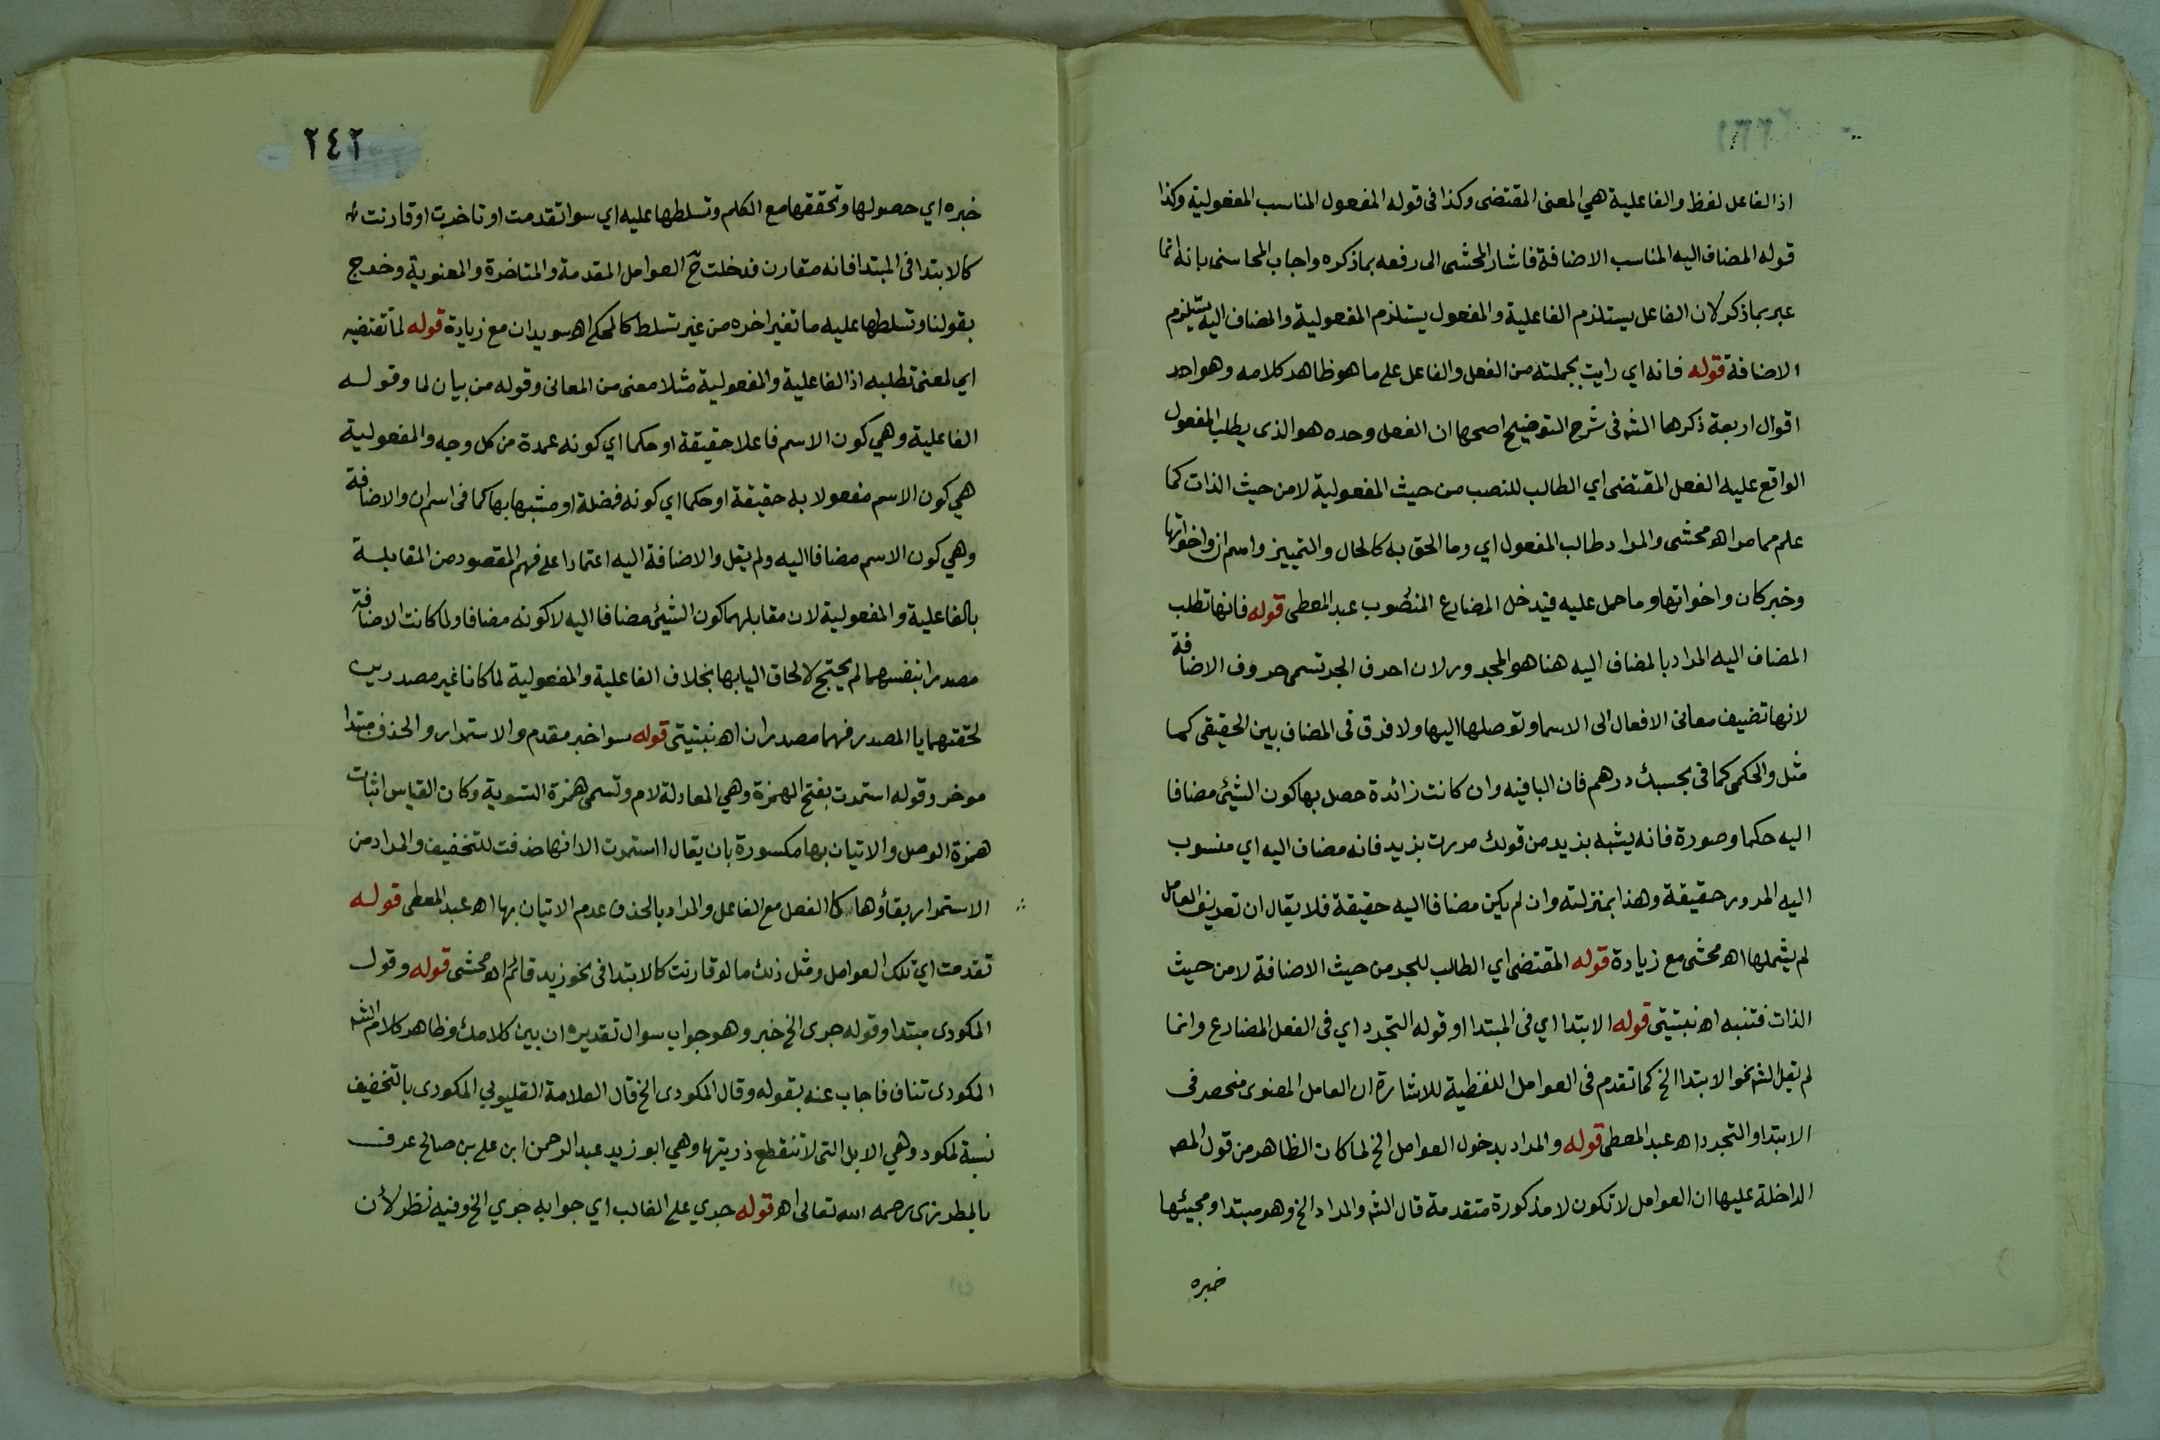 اذ الفاعل لفظ والفاعلية هي المعنى المقتضى وكذا فى قوله المفعول المناسب المفعولية وكذا
قوله المضاف اليه المناسب الاضافة فاشار المحشى الى رفعه بماذكره واجاب المحاسنى بانه انما
عبر بماذكر لان الفاعل يستلزم الفاعلية والمفعول يستلزم المفعولية والمضاف اليه يستلزم
الاضافة قوله فانه اي رايت بجملته من الفعل والفاعل على ما هو ظاهر كلامه وهو احد
اقوال اربعة ذكرها الشه فى شرح التوضيح اصحها ان الفعل وحده هو الذى يطلب المفعول
الواقع عليه الفعل المقتضى اي الطالب للنصب من حيث المفعولية لا من حيث الذات كما
علم مما مر اه محشى والمراد طالب المفعول اي وما الحق به كالحال والتمييز واسم ان واخواتها
وخبر كان واخواتها وما حمل عليه فيدخل المضارع المنصوب عبد المعطى قوله فانها تطلب
المضاف اليه المراد بالمضاف اليه هنا هو المجرور لان احرف الجر تسمى حروف الاضافة
لانها تضيف معانى الافعال الى الاسما وتوصلها اليها ولا فرق فى المضاف بين الحقيقى كما
مثل والحكمى كما فى بحسبك درهم فان البا فيه وان كانت زائدة حصل بها كون الشيئ مضافا
اليه حكما وصورة فانه يشبه بزيد من قولك مررت بزيد فانه مضاف اليه اي منسوب
اليه المرور حقيقة وهذا بمنزلته وان لم يكن مضافا اليه حقيقة فلا يقال ان تعريف العامل
لم يشملها اه محشى مع زيادة قوله المقتضى اي الطالب للجر من حيث الاضافة لا من حيث
الذات فتنبه اه نبتيتى قوله الابتدا اي فى المبتدا وقوله التجرد اي فى الفعل المضارع وانما
لم يقل الشه نحو الابتدا الخ كما تقدم فى العوامل اللفظية للاشارة ان العامل المعنوى منحصر فى
الابتدا والتجرد اه عبد المعطى قوله والمراد بدخول العوامل الخ لما كان الظاهر من قول المص
الداخلة عليها ان العوامل لا تكون لا مذكورة متقدمة قال الشه والمراد الخ وهو مبتدا ومجيئها
خبره
٢٤٢
خبره اي حصولها وتحققها مع الكلم وتسلطها عليه اي سوا تقدمت او تاخرت او قارنت
كالابتدا فى المبتدا فانه مقارن فدخلت ح العوامل المقدمة والمتاخرة والمعنوية وخرج
بقولنا وتسلطها عليه ما تغير اخره من غير تسلط كالمحكي اه سويدان مع زيادة قوله لما تقتضيه
اي لمعنى تطلبه اذ الفاعلية والمفعولية مثلا معنى من المعانى وقوله من بيان لما وقوله
الفاعلية وهي كون الاسم فاعلا حقيقة او حكما اي كونه عمدة من كل وجه والمفعولية
هي كون الاسم مفعولا به حقيقة او حكما اي كونه فضلة او مشبها بها كما فى اسم ان والاضافة
وهي كون الاسم مضافا اليه ولم يقل والاضافة اليه اعتمادا على فهم المقصود من المقابلة
بالفاعلية والمفعولية لان مقابلهما كون الشيئ مضافا اليه لا كونه مضافا ولما كانت الاضافة
مصدرا بنفسها لم يحتج لالحاق اليا بها بخلاف الفاعلية والمفعولية لما كانا غير مصدرين
لحقتهما يا المصدر فهما مصدران اه نبتيتى قوله سوا خبر مقدم والاستمرار والحذف مبتدا
موخر وقوله استمرت بفتح الهمزة وهي المعادلة لام وتسمى همزة التسوية وكان القياس اثبات
همزة الوصل والاتيان بها مكسورة بان يقال ااستمرت الا انها حذفت للتخفيف والمراد من
الاستمرار بقاؤها كالفعل مع الفاعل والمراد بالحذف عدم الاتيان بها اه عبد المعطى قوله
تقدمت اي تلك العوامل ومثل ذلك ما لو قارنت كالابتدا فى نحو زيد قائم اه محشى قوله وقول
المكودى مبتدا وقوله جرى الخ خبر وهو جواب سوال تقديره ان بين كلامك وظاهر كلام الشه
المكودى تناف فاجاب عنه بقوله وقال المكودى الخ قال العلامة القليوبي المكودى بالتخفيف
نسبة لمكود وهي الابل التى لا تنقطع ذريتها وهي ابو زيد عبد الرحمن ابن على بن صالح عرف
بالمطرزى رحمه الله تعالى اه قوله جري على الغالب اي جوابه جري الخ وفيه نظر لأن